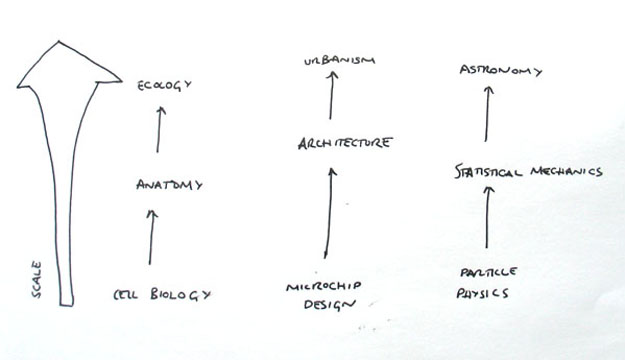 URBANISM
ASTRONOMY
ECOLOGY
ARCHITECTURE
STATISTICAL MECHANICS
ANATOMY
SCALE
CELL BIOLOGY
MICROCHIP
DESIGN
PARTICLE
PHYSICS